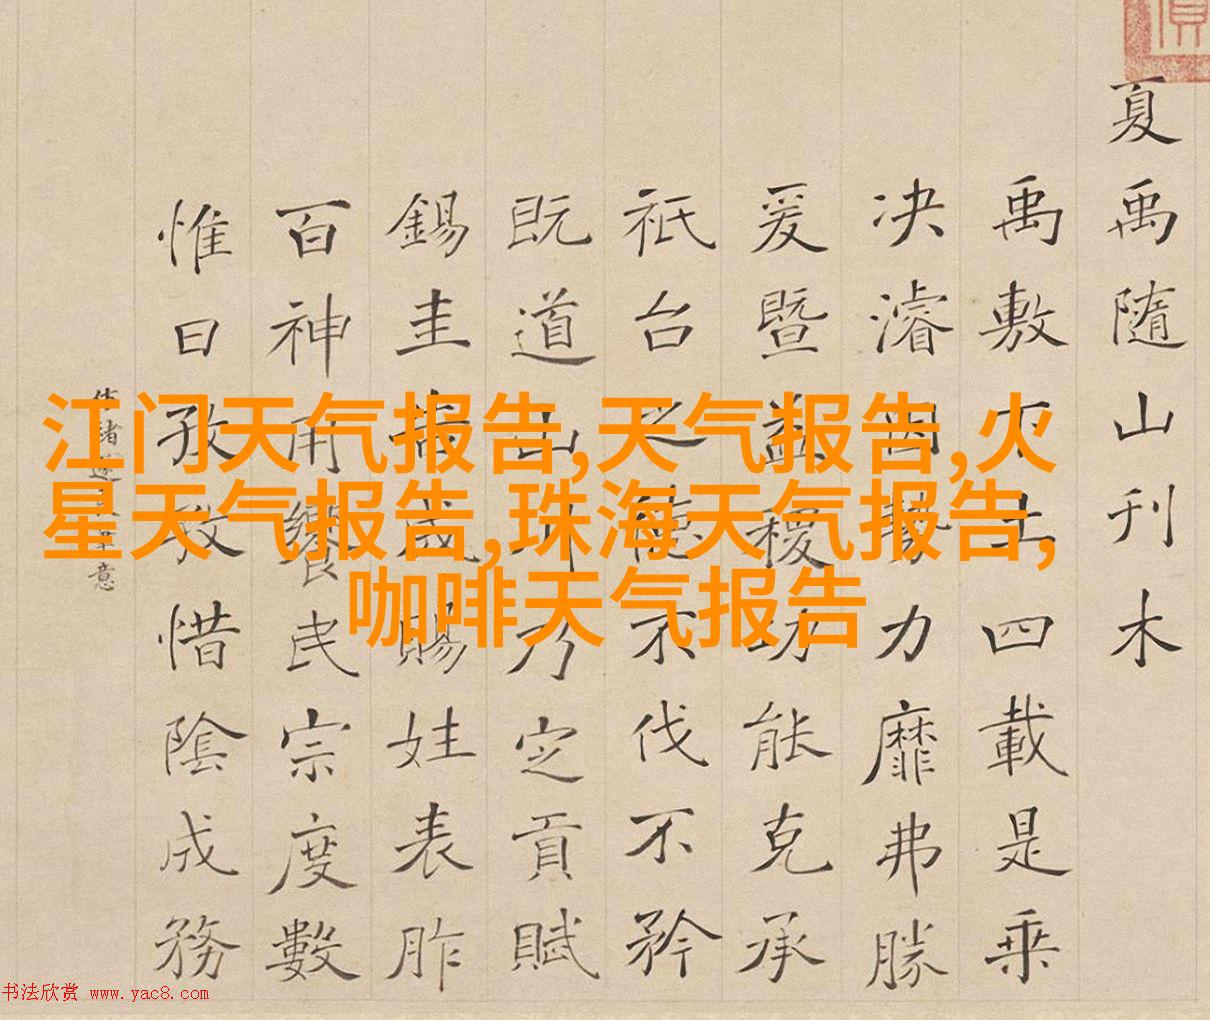 夏禹隨山刊木
禹敷下土四載是乘
决濬因勢力靡弗勝
爰暨益稷功能克承
祇台之德不伐不矜
既道山川乃定貢賦
錫圭告成賜姓表胙
百神用饗民宗度數
惟日孜孜惜陰成務
江门天气报告,天气报告,火
星天气报告,珠海天气报告,
咖啡天气报告
书法欣赏 www.yac8.com